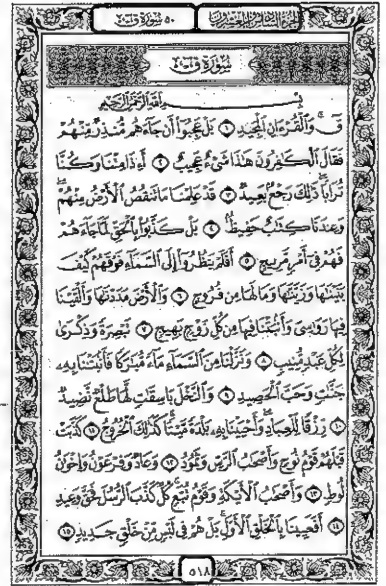 الجزء السادس والعشرون ٥٠ سورة ق
سُورَةُ ق
بِسْمِ اللَّهِ الرَّحْمَٰنِ الرَّحِيمِ
قٓ ۚ وَالْقُرْءَانِ الْمَجِيدِ ١ بَلْ عَجِبُوٓا۟ أَن جَآءَهُم مُّنذِرٌ مِّنْهُمْ
فَقَالَ الْكَٰفِرُونَ هَٰذَا شَىْءٌ عَجِيبٌ ٢ أَءِذَا مِتْنَا وَكُنَّا
تُرَابًا ۖ ذَٰلِكَ رَجْعٌۢ بَعِيدٌ ٣ قَدْ عَلِمْنَا مَا تَنقُصُ الْأَرْضُ مِنْهُمْ ۖ
وَعِندَنَا كِتَٰبٌ حَفِيظٌۢ ٤ بَلْ كَذَّبُوا۟ بِالْحَقِّ لَمَّا جَآءَهُمْ
فَهُمْ فِىٓ أَمْرٍ مَّرِيجٍ ٥ أَفَلَمْ يَنظُرُوٓا۟ إِلَى السَّمَآءِ فَوْقَهُمْ كَيْفَ
بَنَيْنَٰهَا وَزَيَّنَّٰهَا وَمَا لَهَا مِن فُرُوجٍ ٦ وَالْأَرْضَ مَدَدْنَٰهَا وَأَلْقَيْنَا
فِيهَا رَوَٰسِىَ وَأَنۢبَتْنَا فِيهَا مِن كُلِّ زَوْجٍۭ بَهِيجٍ ٧ تَبْصِرَةً وَذِكْرَىٰ
لِكُلِّ عَبْدٍ مُّنِيبٍ ٨ وَنَزَّلْنَا مِنَ السَّمَآءِ مَآءً مُّبَٰرَكًا فَأَنۢبَتْنَا بِهِۦ
جَنَّٰتٍ وَحَبَّ الْحَصِيدِ ٩ وَالنَّخْلَ بَاسِقَٰتٍ لَّهَا طَلْعٌ نَّضِيدٌ
١٠ رِّزْقًا لِّلْعِبَادِ ۖ وَأَحْيَيْنَا بِهِۦ بَلْدَةً مَّيْتًا ۚ كَذَٰلِكَ الْخُرُوجُ ١١ كَذَّبَتْ
قَبْلَهُمْ قَوْمُ نُوحٍ وَأَصْحَٰبُ الرَّسِّ وَثَمُودُ ١٢ وَعَادٌ وَفِرْعَوْنُ وَإِخْوَٰنُ
لُوطٍ ١٣ وَأَصْحَٰبُ الْأَيْكَةِ وَقَوْمُ تُبَّعٍ ۚ كُلٌّ كَذَّبَ الرُّسُلَ فَحَقَّ وَعِيدِ
١٤ أَفَعَيِينَا بِالْخَلْقِ الْأَوَّلِ ۚ بَلْ هُمْ فِى لَبْسٍ مِّنْ خَلْقٍ جَدِيدٍ ١٥
٥١٨